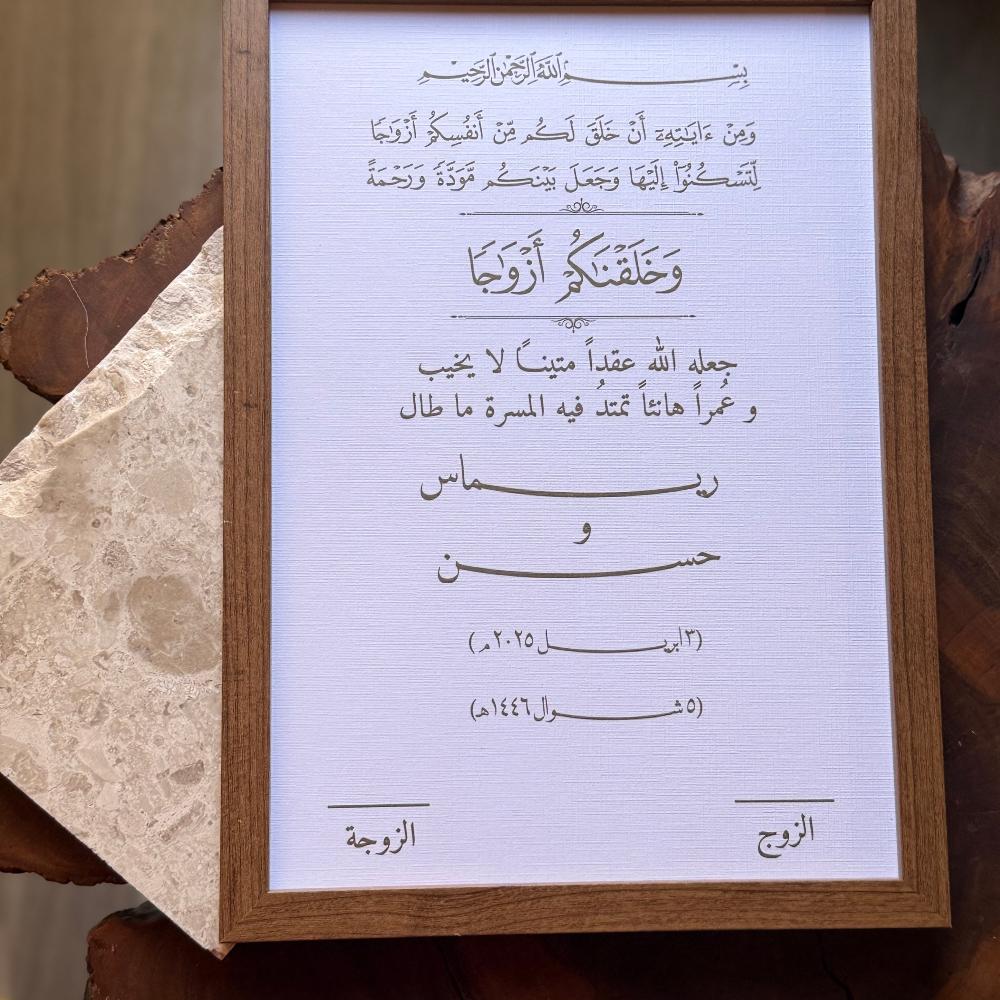 بِسْمِ اللَّهِ الرَّحْمَٰنِ الرَّحِيمِ
وَمِنْ ءَايَـٰتِهِۦٓ أَنْ خَلَقَ لَكُم مِّنْ أَنفُسِكُمْ أَزْوَٰجًا
لِّتَسْكُنُوٓا۟ إِلَيْهَا وَجَعَلَ بَيْنَكُم مَّوَدَّةً وَرَحْمَةً
وَخَلَقْنَـٰكُمْ أَزْوَٰجًا
جعله الله عقداً متيناً لا يخيب
و عُمراً هانئاً تمتدُ فيه المسرة ما طال
ريـــماس
و
حســـن
(٣ ابريـــل ٢٠٢٥م)
(٥ شـــوال ١٤٤٦هـ)
الزوج
الزوجة